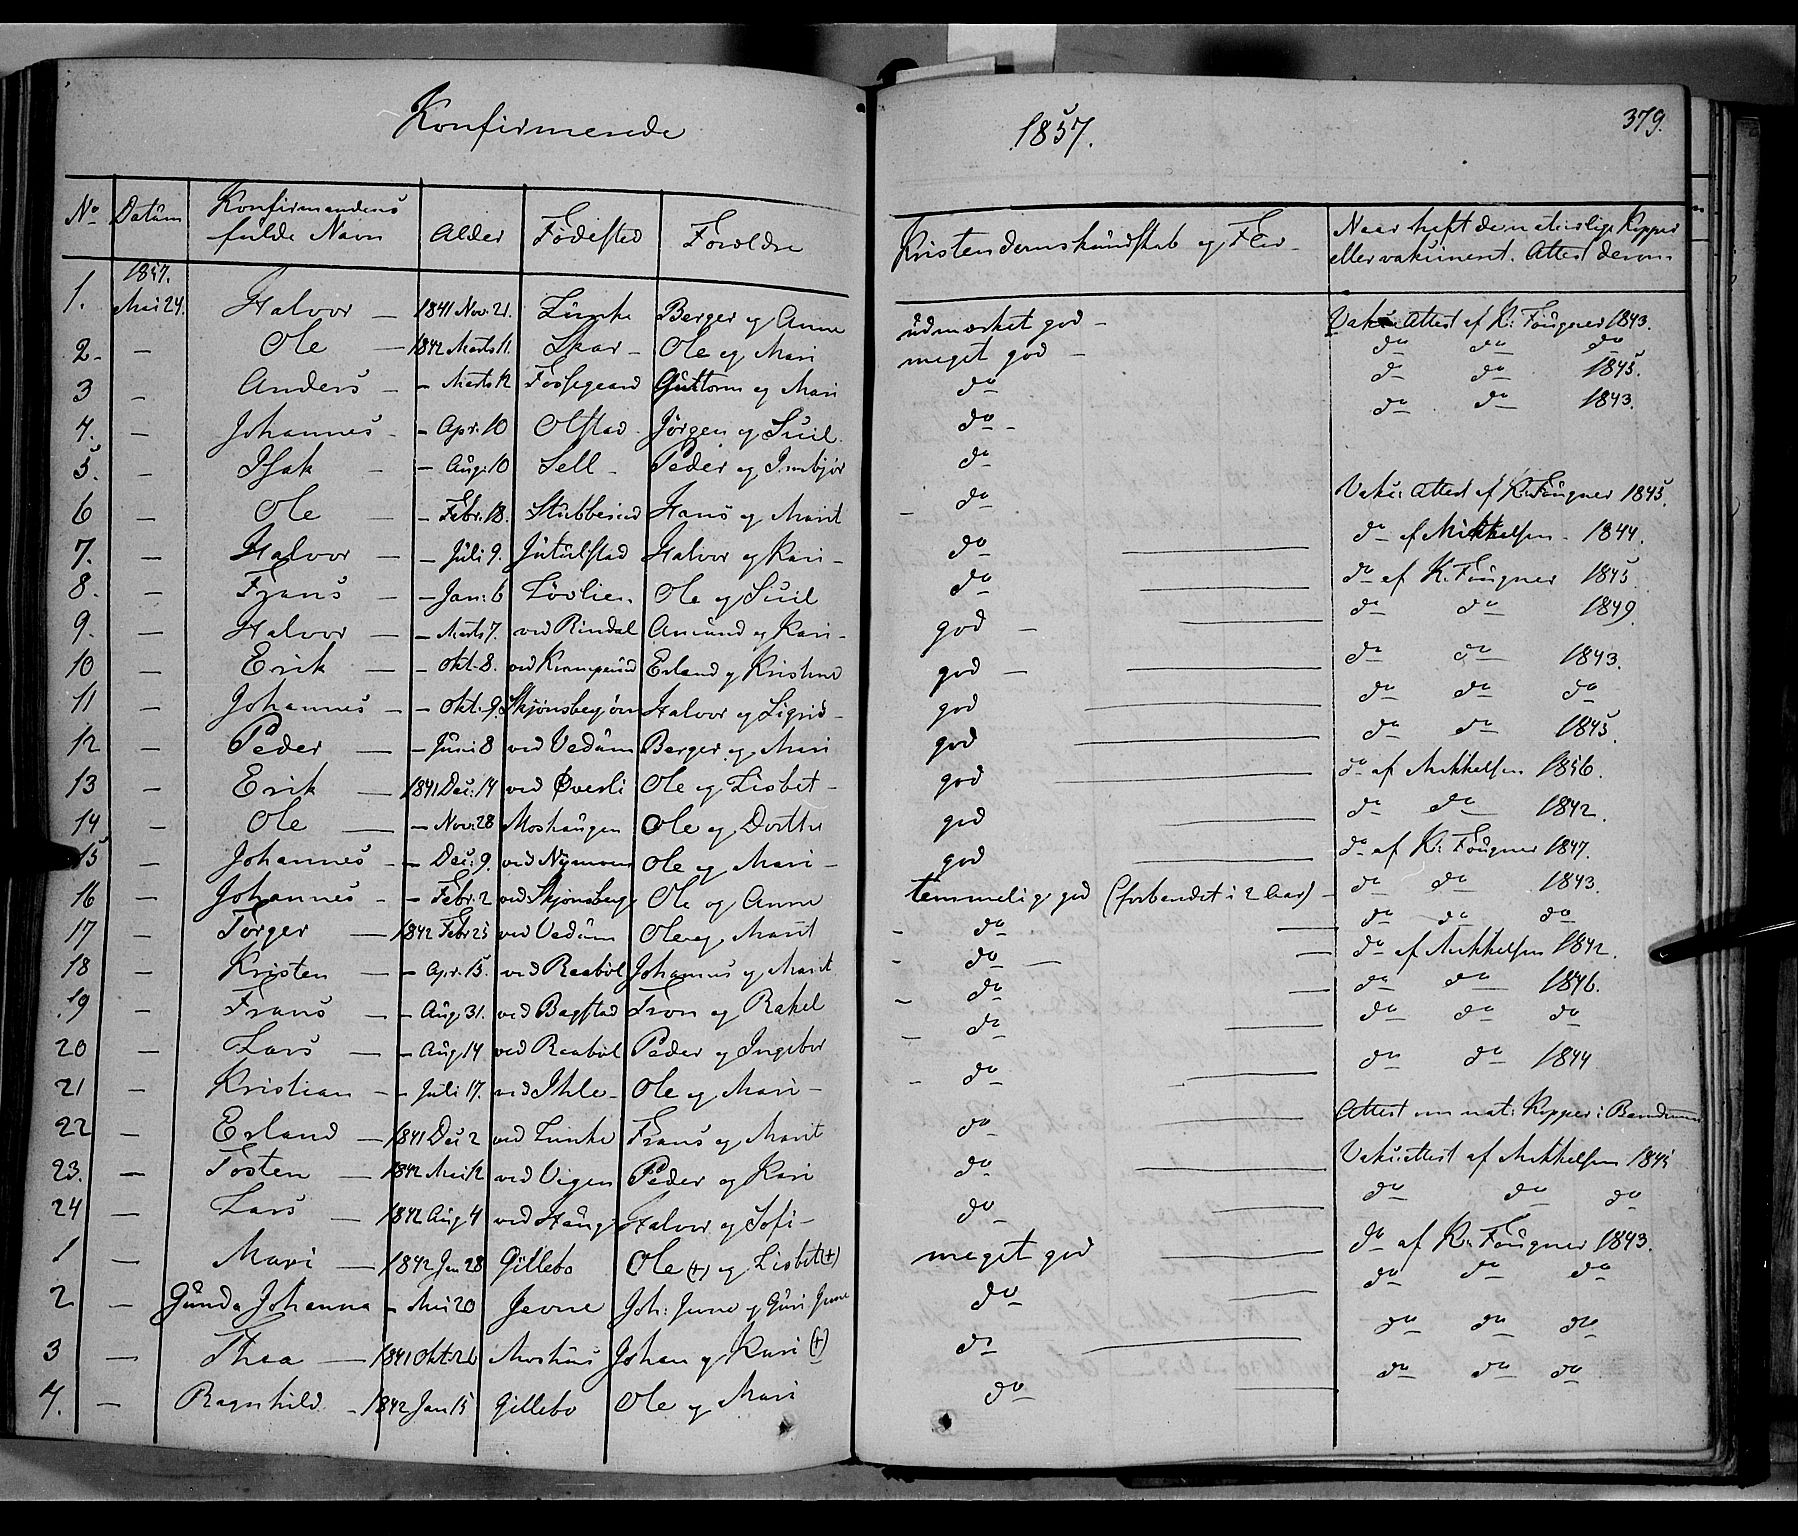 Konfirmerede 1857. 379.
No Datum Konfirmandens fulde Navn Alder Fødested Forældre Kristendomskundskab og Flid Naar haft de naturlige Kopper eller vakcineret. Attest derom
1. 1857. Mai 24. Halvor 1841 Nov. 21. Linke Berger og Anne udmærket god Vak: Attest af K: Fougner 1843.
2 - Ole 1842 Marts 11. Skar Ole og Mari meget god do do do
3 - Anders - Marts 12 Fossegaard Guttorm og Mari do do do 1845.
4. - Johannes - Apr. 10 Olstad Jørgen og Siril do do do 1843.
5. - Isak - Aug: 10 Sell Peder og Imbjør do
6 - Ole - Febr. 18. Stubberud Hans og Marit do Vak: Attest af K: Fougner 1845.
7. - Halvor - Juli 9. Jutulstad Halvor og Kari do do af Mikkelsen 1844.
8. - Frans - Jan: 6 Løvlien Ole og Siril do do af K. Fougner 1845
9. - Halvor - Marts 7. ved Rindal Amund og Kari god do do 1849.
10 - Erik - Okt. 8. ved Erland og Kristine god do do 1843.
11 - Johannes - Okt. 9. Halvor og Sigrid god do do do
12 - Peder - Juni 8 ved Vedum Berger og Mari god do do 1845.
13 - Erik 1841 Dec: 14 ved Øverli Ole og Lisbet god do af Mikkelsen 1856.
14 - Ole - Nov: 28 Moshaugen Ole og Dorthe god do do 1842.
15 - Johannes - Dec: 9. ved Nymoen Ole og Mari god do af K: Fougner 1847.
16 - Johannes - Febr. 2 ved Skjønsberg Ole og Anne temmelig god (forberedet i 2 Aar) do do 1843.
17 - Torger 1842 Febr 25 ved Vedum Ole og Marit do do do do
18 - Kristen - Apr. 15. ved Raabøl Johannes og Marit do do af Mikkelsen 1842.
19 - Frans - Aug. 31. ved Bagstad Tron og Rakel do do do 1846.
20 - Lars - Aug. 14 ved Raabøl Peder og Ingebor do do do do
21 - Kristian - Juli 17. ved Ihle Ole og Mari do do do 1844
22 - Erland 1841 Dec 2 ved Linke Frans og Marit do Attest om nat: Kopper i Barndommen
23. - Tosten 1842 Mai 12 ved Vigen Peder og Kari do Vak: attest af Mikkelsen 1845
24 - Lars 1842 Aug 4 ved Haug Halvor og Sofi do do do do
1 - Mari 1842 Jan 28 Gillebo Ole (+) og Lisbet (+) meget god do af K: Fougner 1843.
2 - Gunda Johanna - Mai 20 Jevne Joh: Jevne og Guri Jevne do do do do
3 - Thea 1841 Okt. 26 Moshus Johan og Kari (+) do do do do
4. - Ragnhild 1842 Jan 15 Gillebo Ole og Mari do do do do